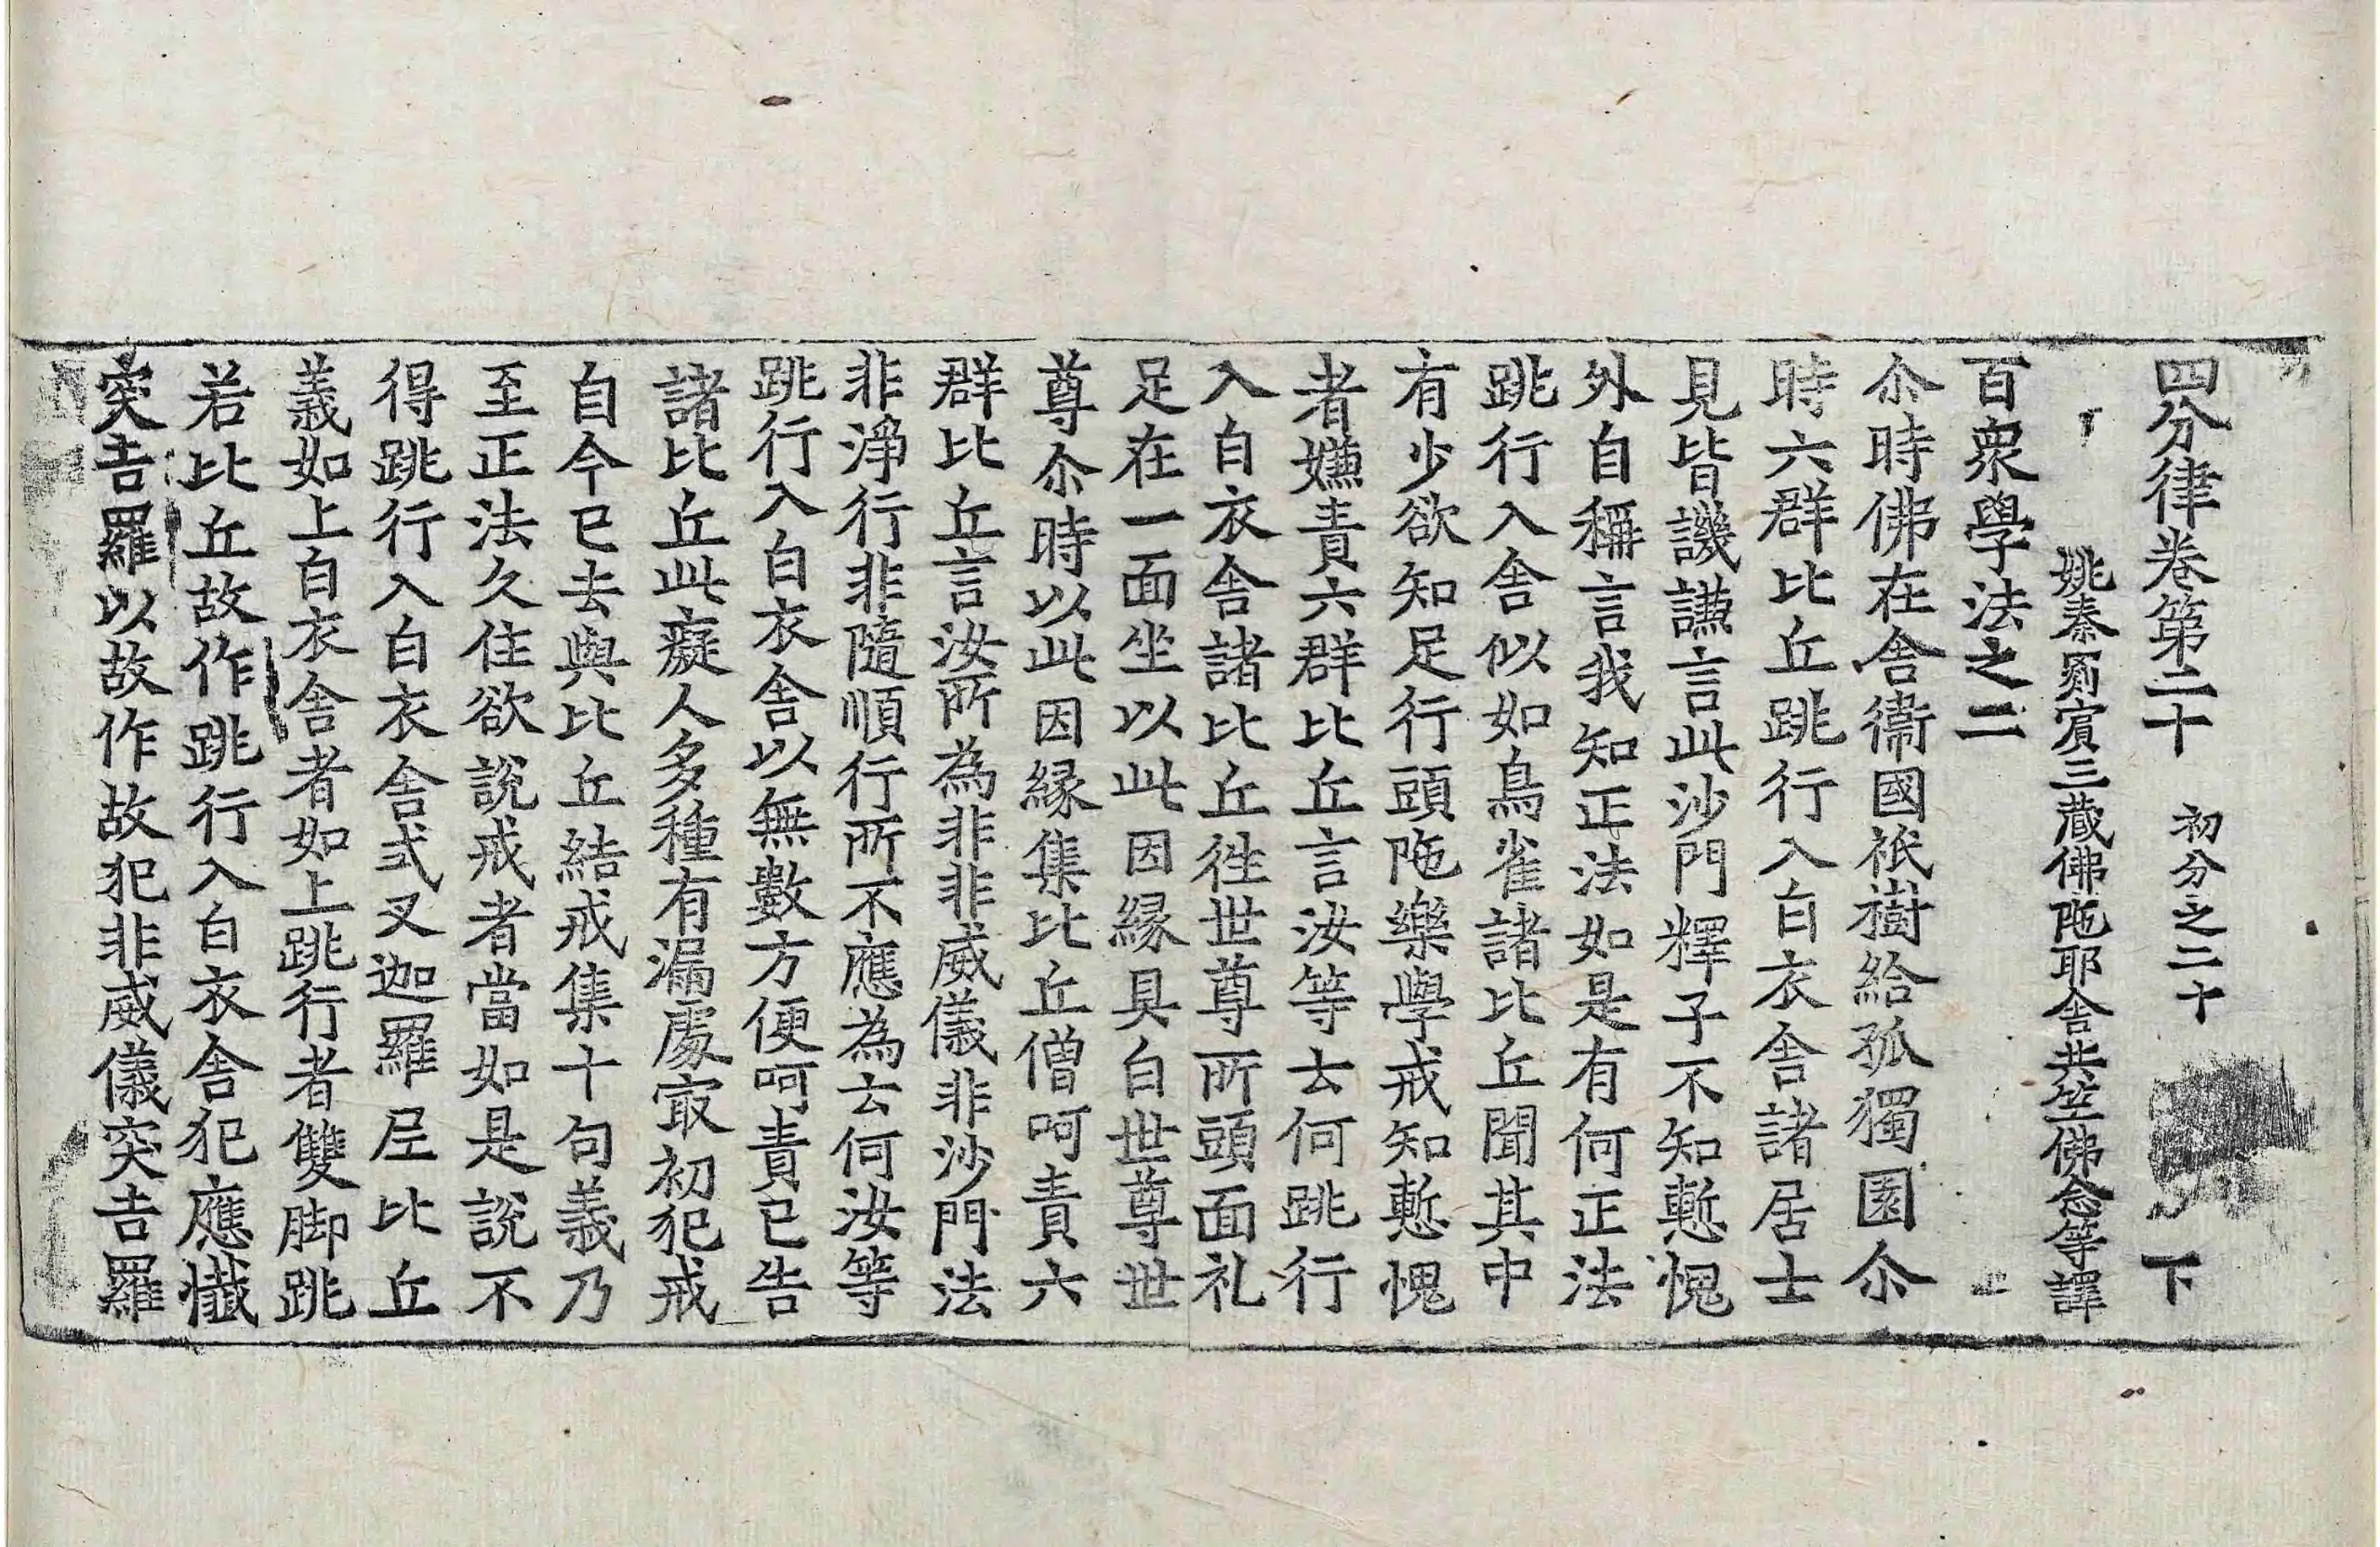 四分律卷第二十 初分之二十 下
姚秦罽賔三藏佛陁耶舎共竺佛念等譯
百衆學法之二
尒時佛在舎衞國祇樹給孤獨園尒
時六群比丘跳行入白衣舎諸居士
見皆譏嫌言此沙門釋子不知慙愧
外自稱言我知正法如是有何正法
跳行入舎似如鳥雀諸比丘聞其中
有少欲知足行頭陁樂學戒知慙愧
者嫌責六群比丘言汝等云何跳行
入白衣舎諸比丘徃世尊所頭面礼
足在一面坐以此因縁具白世尊世
尊尒時以此因縁集比丘僧呵責六
群比丘言汝所為非非威儀非沙門法
非淨行非隨順行所不應為云何汝等
跳行入白衣舎以無數方便呵責已告
諸比丘此癡人多種有漏處㝡初犯戒
自今已去與比丘結戒集十句義乃
至正法久住欲說戒者當如是說不
得跳行入白衣舎式叉迦羅尼比丘
義如上白衣舎者如上跳行者雙脚跳
若比丘故作跳行入白衣舎犯應懴
突吉羅以故作故犯非威儀突吉羅